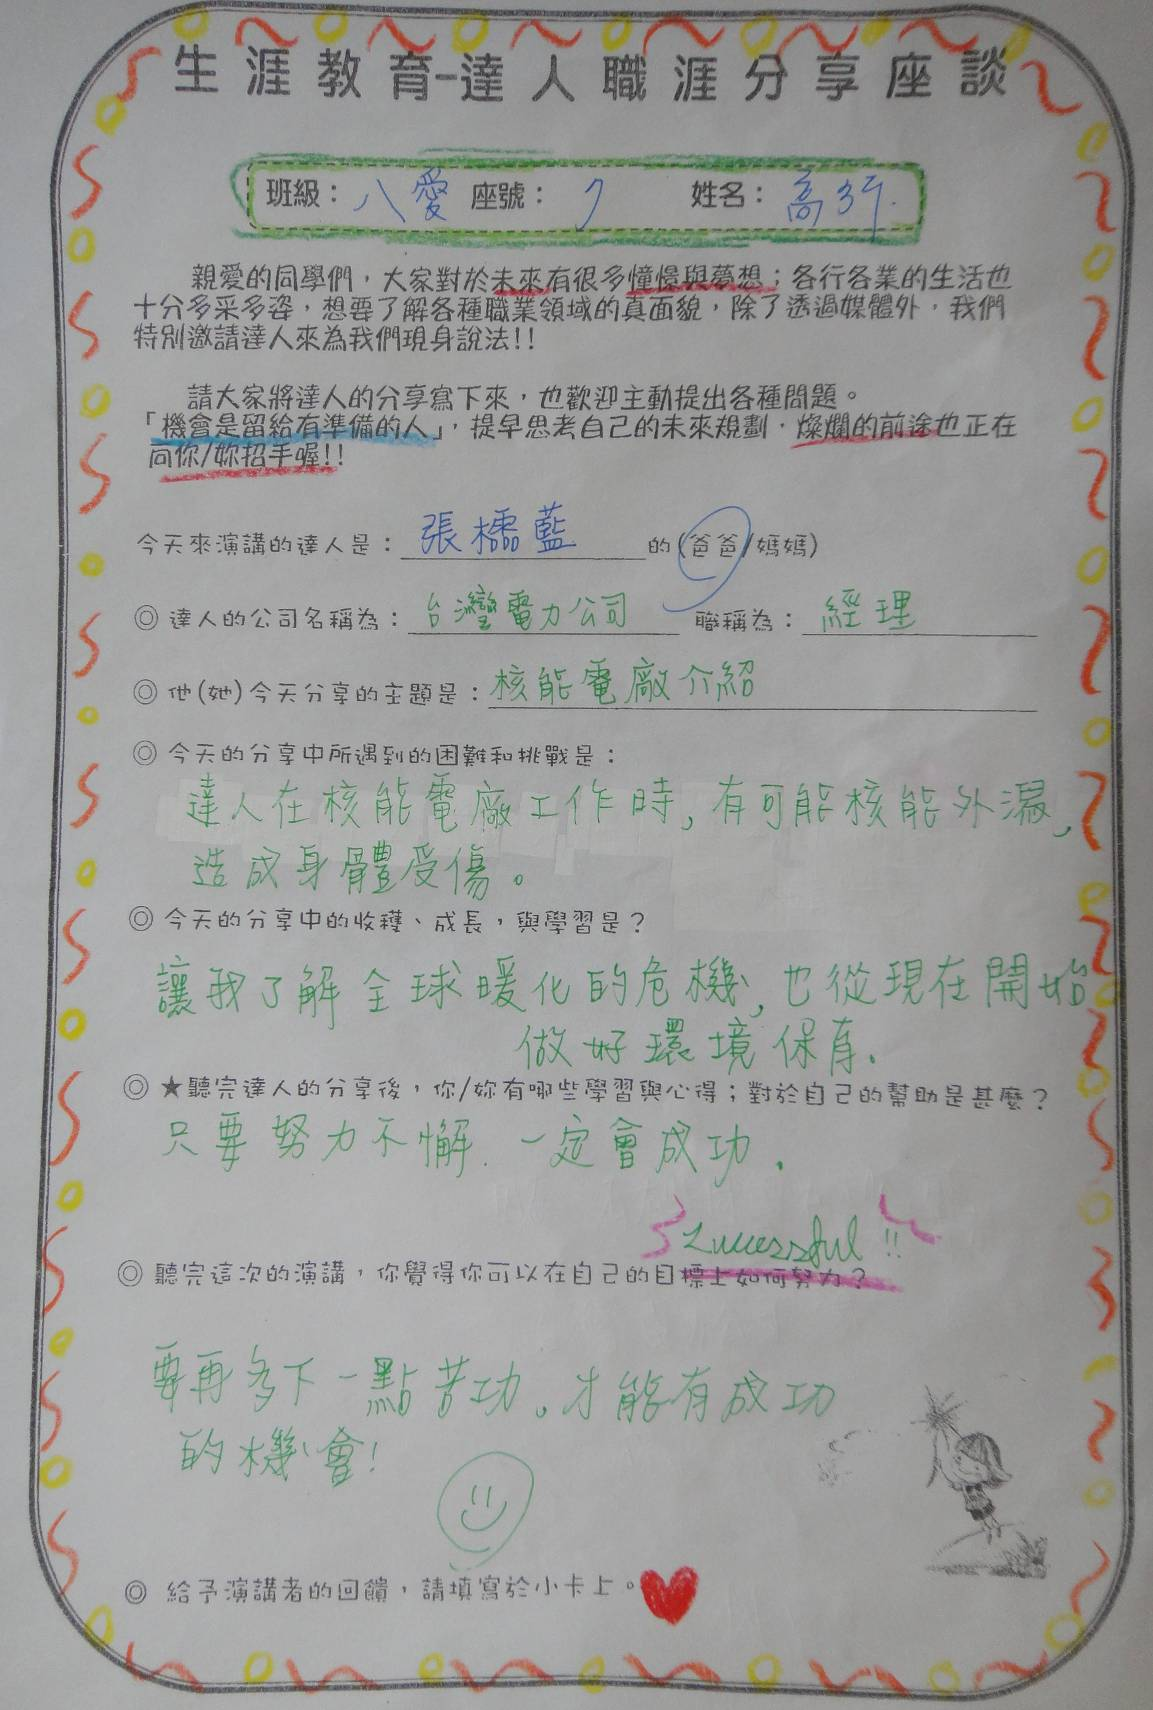 生涯教育-達人職涯分享座談
班級：八愛 座號：7 姓名：高
親愛的同學們，大家對於未來有很多憧憬與夢想；各行各業的生活也
十分多采多姿，想要了解各種職業領域的真面貌，除了透過媒體外，我們
特別邀請達人來為我們現身說法!!
請大家將達人的分享寫下來，也歡迎主動提出各種問題。
「機會是留給有準備的人」，提早思考自己的未來規劃，燦爛的前途也正在
向你/妳招手喔!!
今天來演講的達人是：張檽藍 的(爸爸/媽媽)
◎ 達人的公司名稱為：台灣電力公司 職稱為：經理
◎ 他(她)今天分享的主題是：核能電廠介紹
◎ 今天的分享中所遇到的困難和挑戰是：
達人在核能電廠工作時，有可能核能外漏，
造成身體受傷。
◎ 今天的分享中的收穫、成長，與學習是？
讓我了解全球暖化的危機，也從現在開始
做好環境保育.
◎ ★聽完達人的分享後，你/妳有哪些學習與心得；對於自己的幫助是甚麼？
只要努力不懈.一定會成功.
Successful!!
◎ 聽完這次的演講，你覺得你可以在自己的目標上如何努力？
要再多下一點苦功。才能有成功
的機會!
◎ 給予演講者的回饋，請填寫於小卡上。